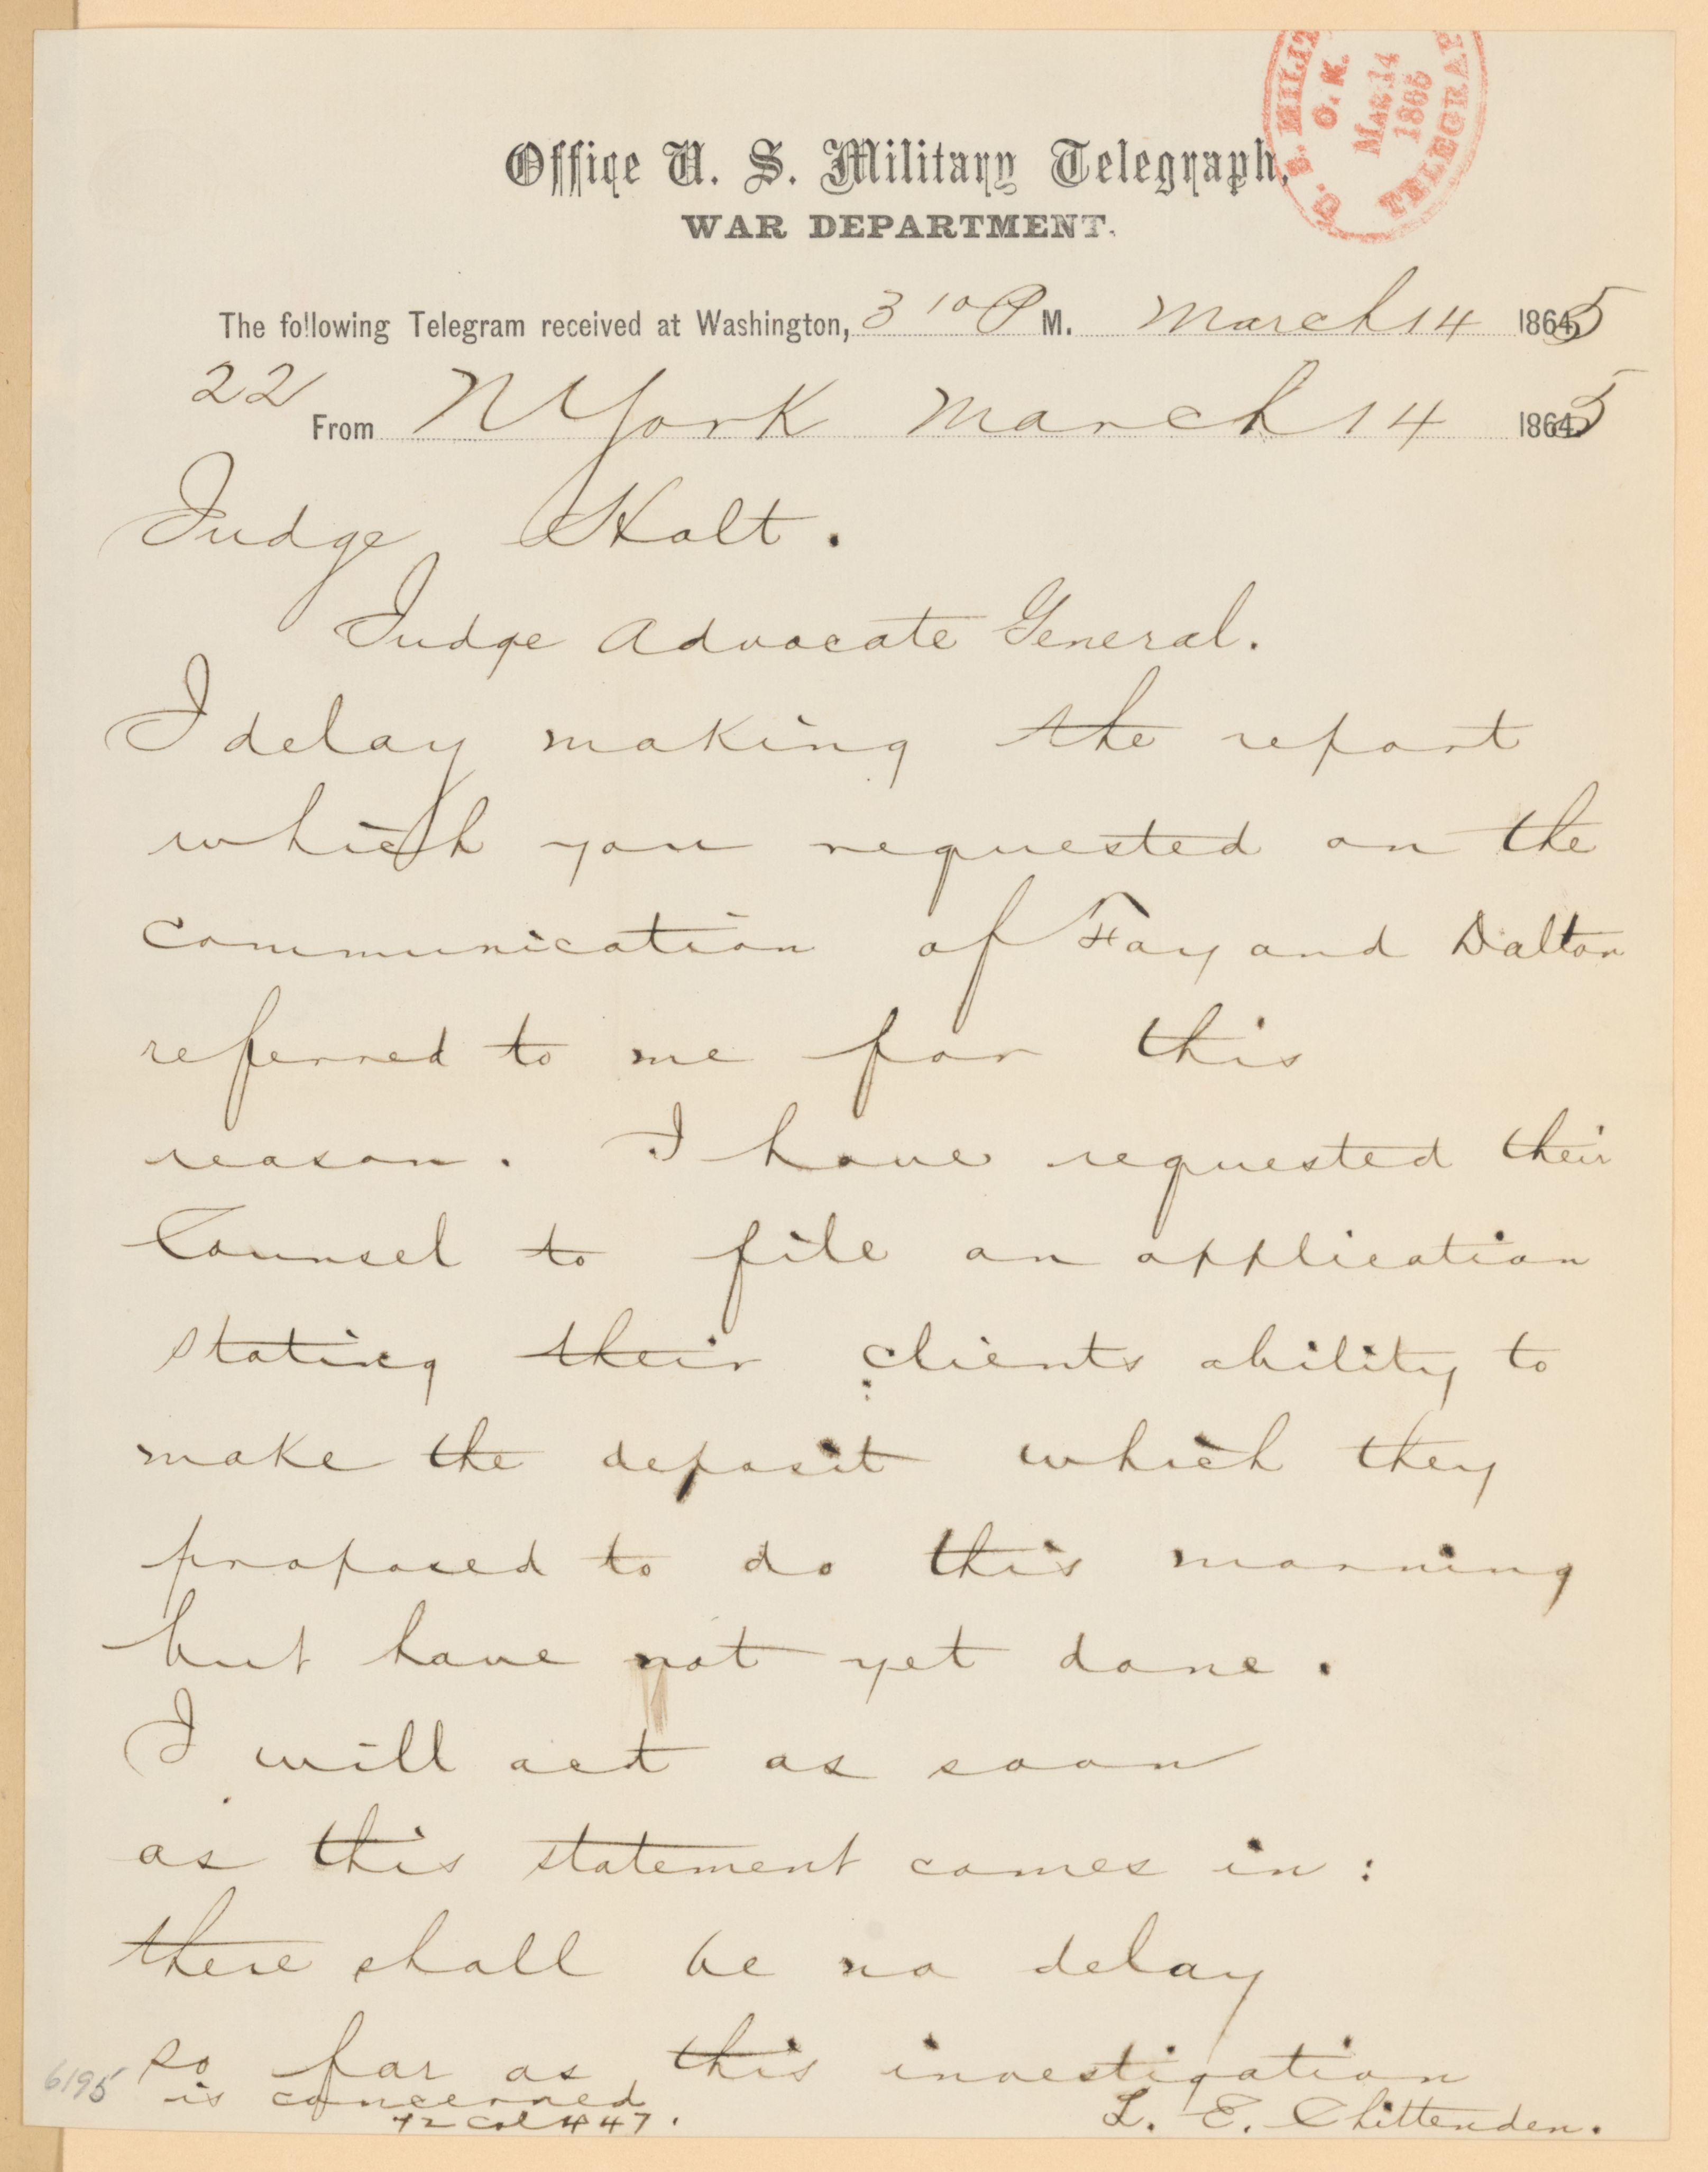 U. S. MILIT
O. K.
MAR 14
1865
TELEGRAP
Office U. S. Military Telegraph,
WAR DEPARTMENT.
The following Telegram received at Washington, 3 10 P M. March 14 1865
22
From N York March 14 1865
Judge Holt.
Judge Advocate General.
I delay making the report
which you requested on the
communication of Fay and Dalton
referred to me for this
reason. I have requested their
Counsel to file an application
stating their clients ability to
make the deposit which they
proposed to do this morning
but have not yet done.
I will act as soon
as this statement comes in:
there shall be no delay
so far as this investigation
is concerned
L. E. Chittenden.
72 Col # 47.
6195